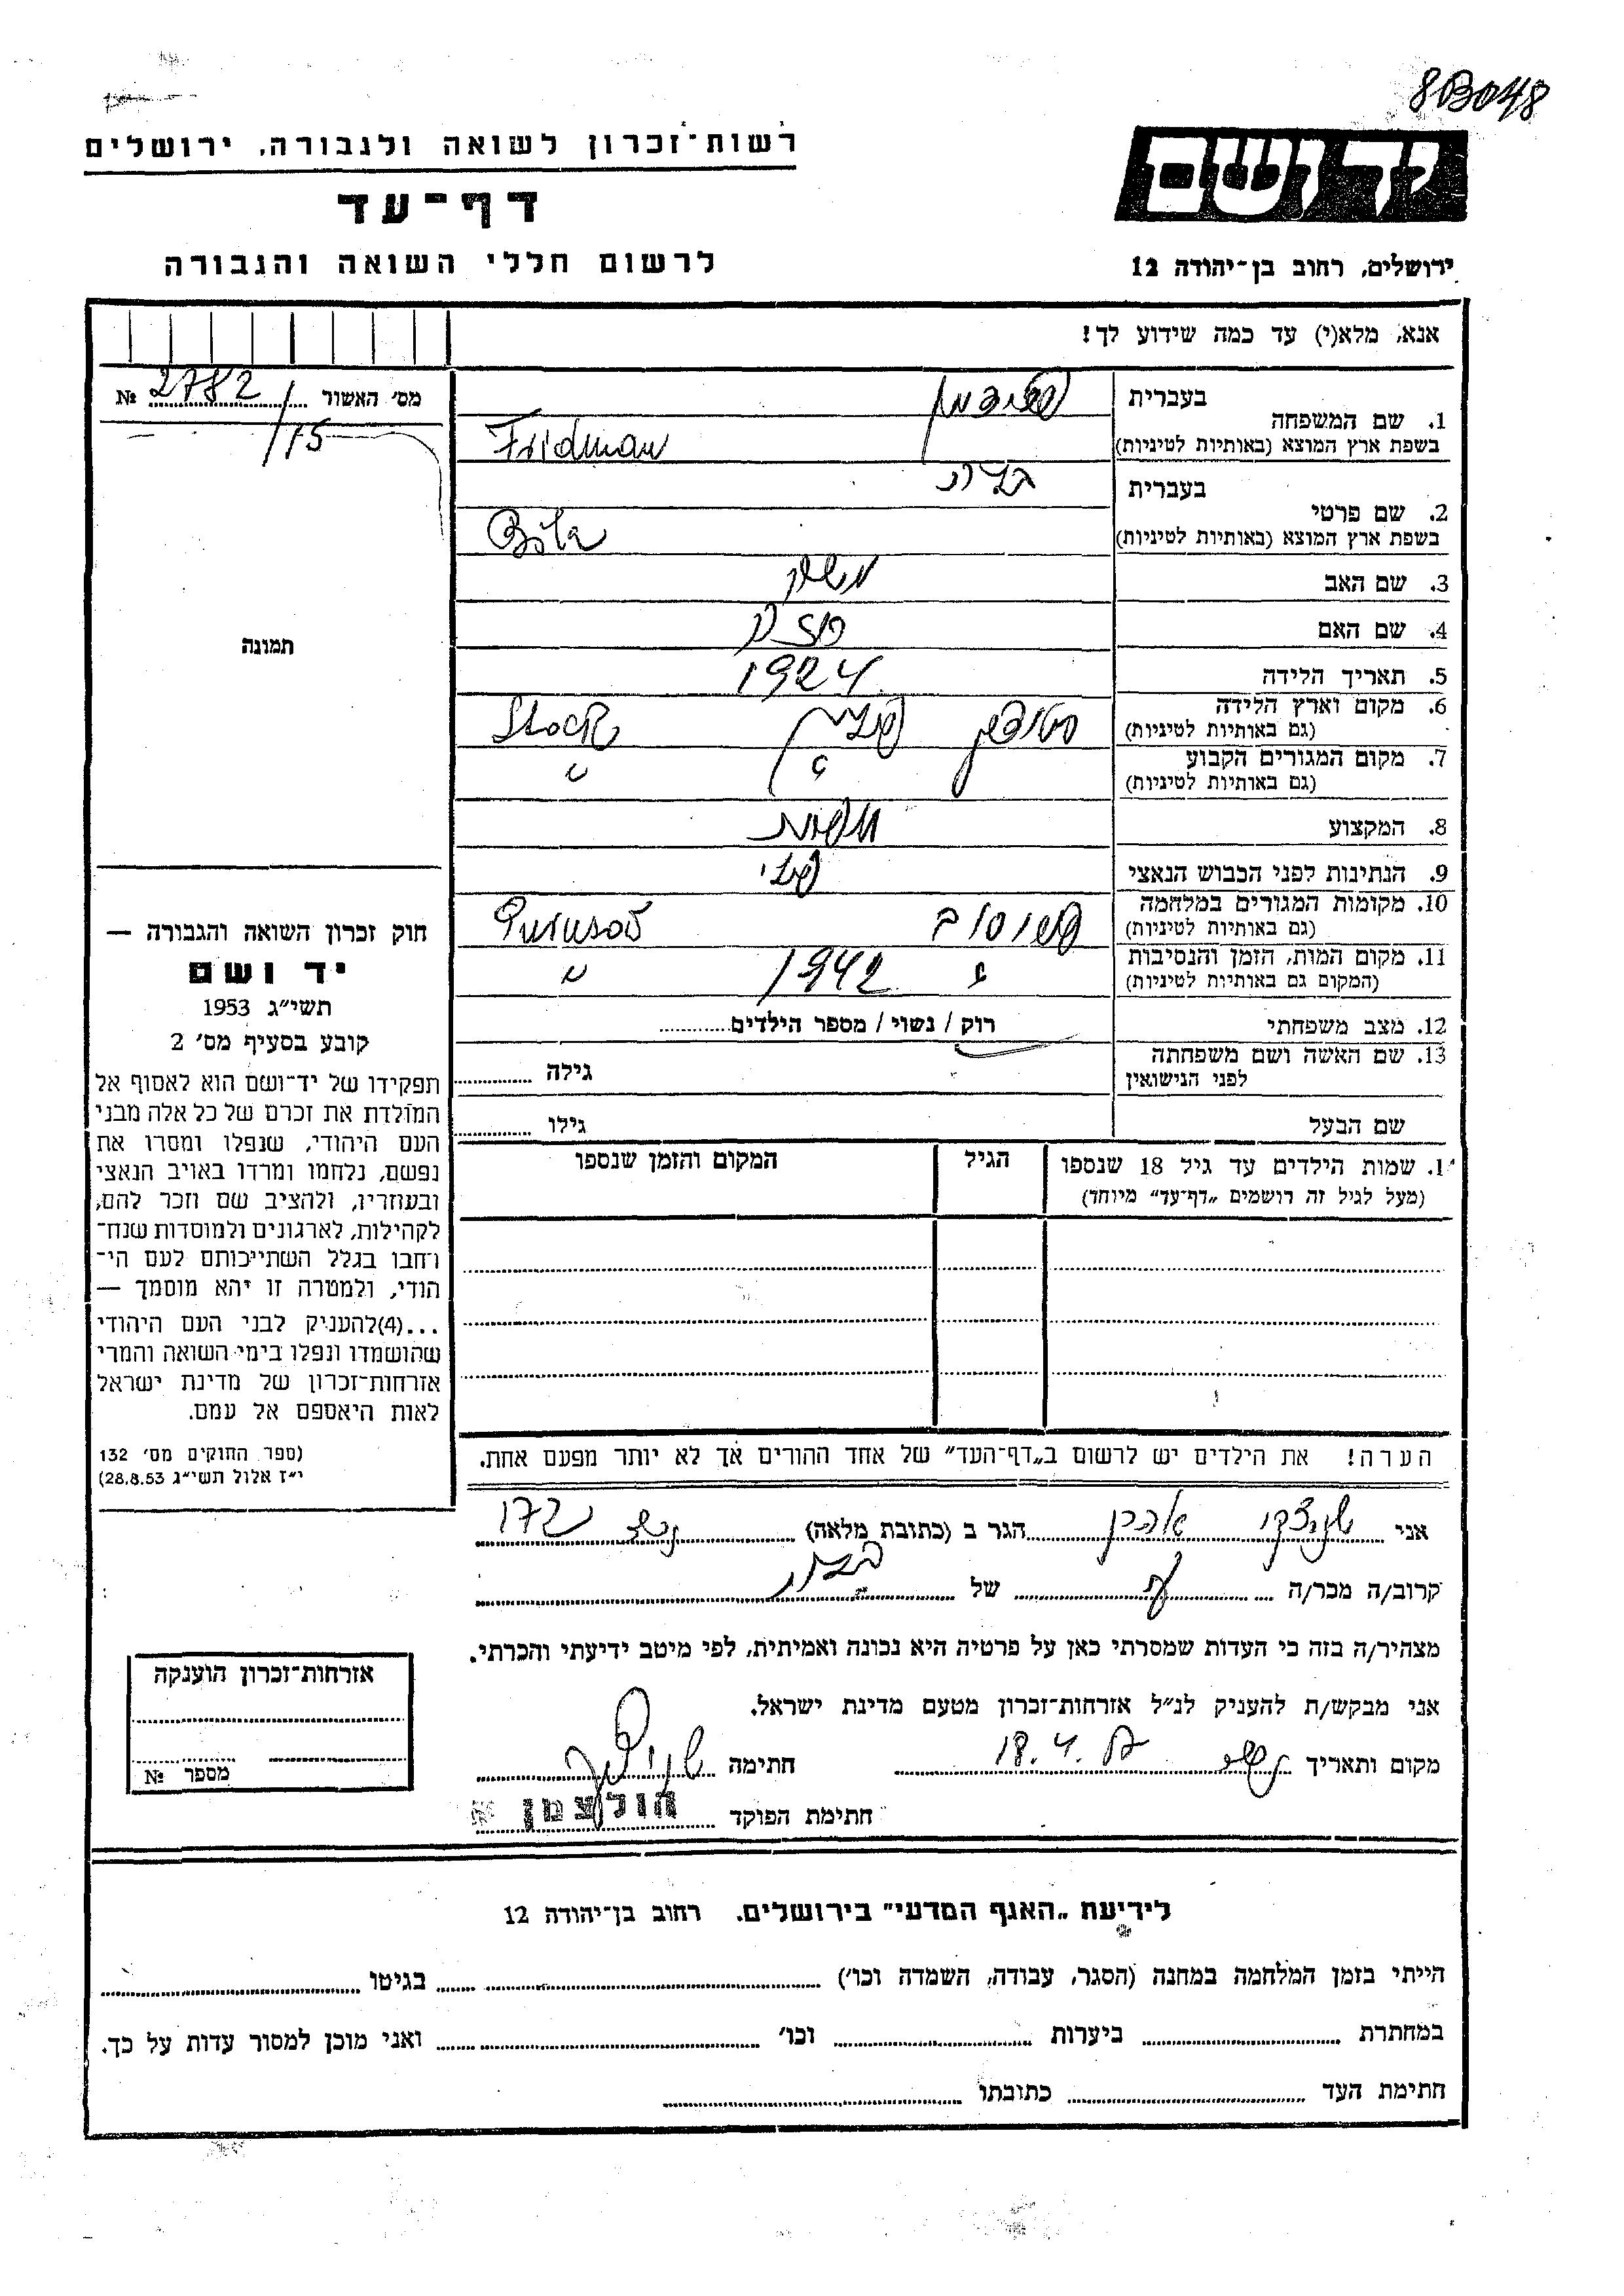 8B048
רשות־זכרון לשואה ולגבורה, ירושלים
דף־עד
לרשום חללי השואה והגבורה
יד ושם
ירושלים, רחוב בן־יהודה 12
אנא, מלא(י) עד כמה שידוע לך!
מס׳ האשור 2782/15 №
תמונה
1. שם המשפחה
בעברית פרידמן
בשפת ארץ המוצא (באותיות לטיניות) Fridman
2. שם פרטי
בעברית
בשפת ארץ המוצא (באותיות לטיניות)
3. שם האב משה
4. שם האם
5. תאריך הלידה 1924
6. מקום וארץ הלידה פולין Stock
(גם באותיות לטיניות)
7. מקום המגורים הקבוע " "
(גם באותיות לטיניות)
8. המקצוע
9. הנתינות לפני הכבוש הנאצי פולני
10. מקומות המגורים במלחמה
(גם באותיות לטיניות)
11. מקום המות, הזמן והנסיבות " 1942 "
(המקום גם באותיות לטיניות)
12. מצב משפחתי רוק / נשוי / מספר הילדים
13. שם האשה ושם משפחתה
לפני הנישואין גילה
שם הבעל גילו
14. שמות הילדים עד גיל 18 שנספו הגיל המקום והזמן שנספו
(מעל לגיל זה רושמים „דף־עד״ מיוחד)
הערה! את הילדים יש לרשום ב„דף־העד״ של אחד ההורים אך לא יותר מפעם אחת.
חוק זכרון השואה והגבורה —
יד ושם
תשי״ג 1953
קובע בסעיף מס׳ 2
תפקידו של יד־ושם הוא לאסוף אל
המולדת את זכרם של כל אלה מבני
העם היהודי, שנפלו ומסרו את
נפשם, נלחמו ומרדו באויב הנאצי
ובעוזריו, ולהציב שם וזכר להם,
לקהילות, לארגונים ולמוסדות שנח־
רחבו בגלל השתייכותם לעם הי־
הודי, ולמטרה זו יהא מוסמך —
...(4)להעניק לבני העם היהודי
שהושמדו ונפלו בימי השואה והמרי
אזרחות־זכרון של מדינת ישראל
לאות היאספם אל עמם.
(ספר החוקים מס׳ 132
י״ז אלול תשי״ג 28.8.53)
אני אהרן הגר ב (כתובת מלאה)
קרוב/ה מכר/ה של
מצהיר/ה בזה כי העדות שמסרתי כאן על פרטיה היא נכונה ואמיתית, לפי מיטב ידיעתי והכרתי.
אני מבקש/ת להעניק לנ״ל אזרחות־זכרון מטעם מדינת ישראל.
מקום ותאריך 18.4. חתימה
חתימת הפוקד הולצמן א
אזרחות־זכרון הוענקה
מספר №
לידיעת „האגף המדעי״ בירושלים, רחוב בן־יהודה 12
הייתי בזמן המלחמה במחנה (הסגר, עבודה, השמדה וכו׳) בגיטו
במחתרת ביערות וכו׳ ואני מוכן למסור עדות על כך.
חתימת העד כתובתו